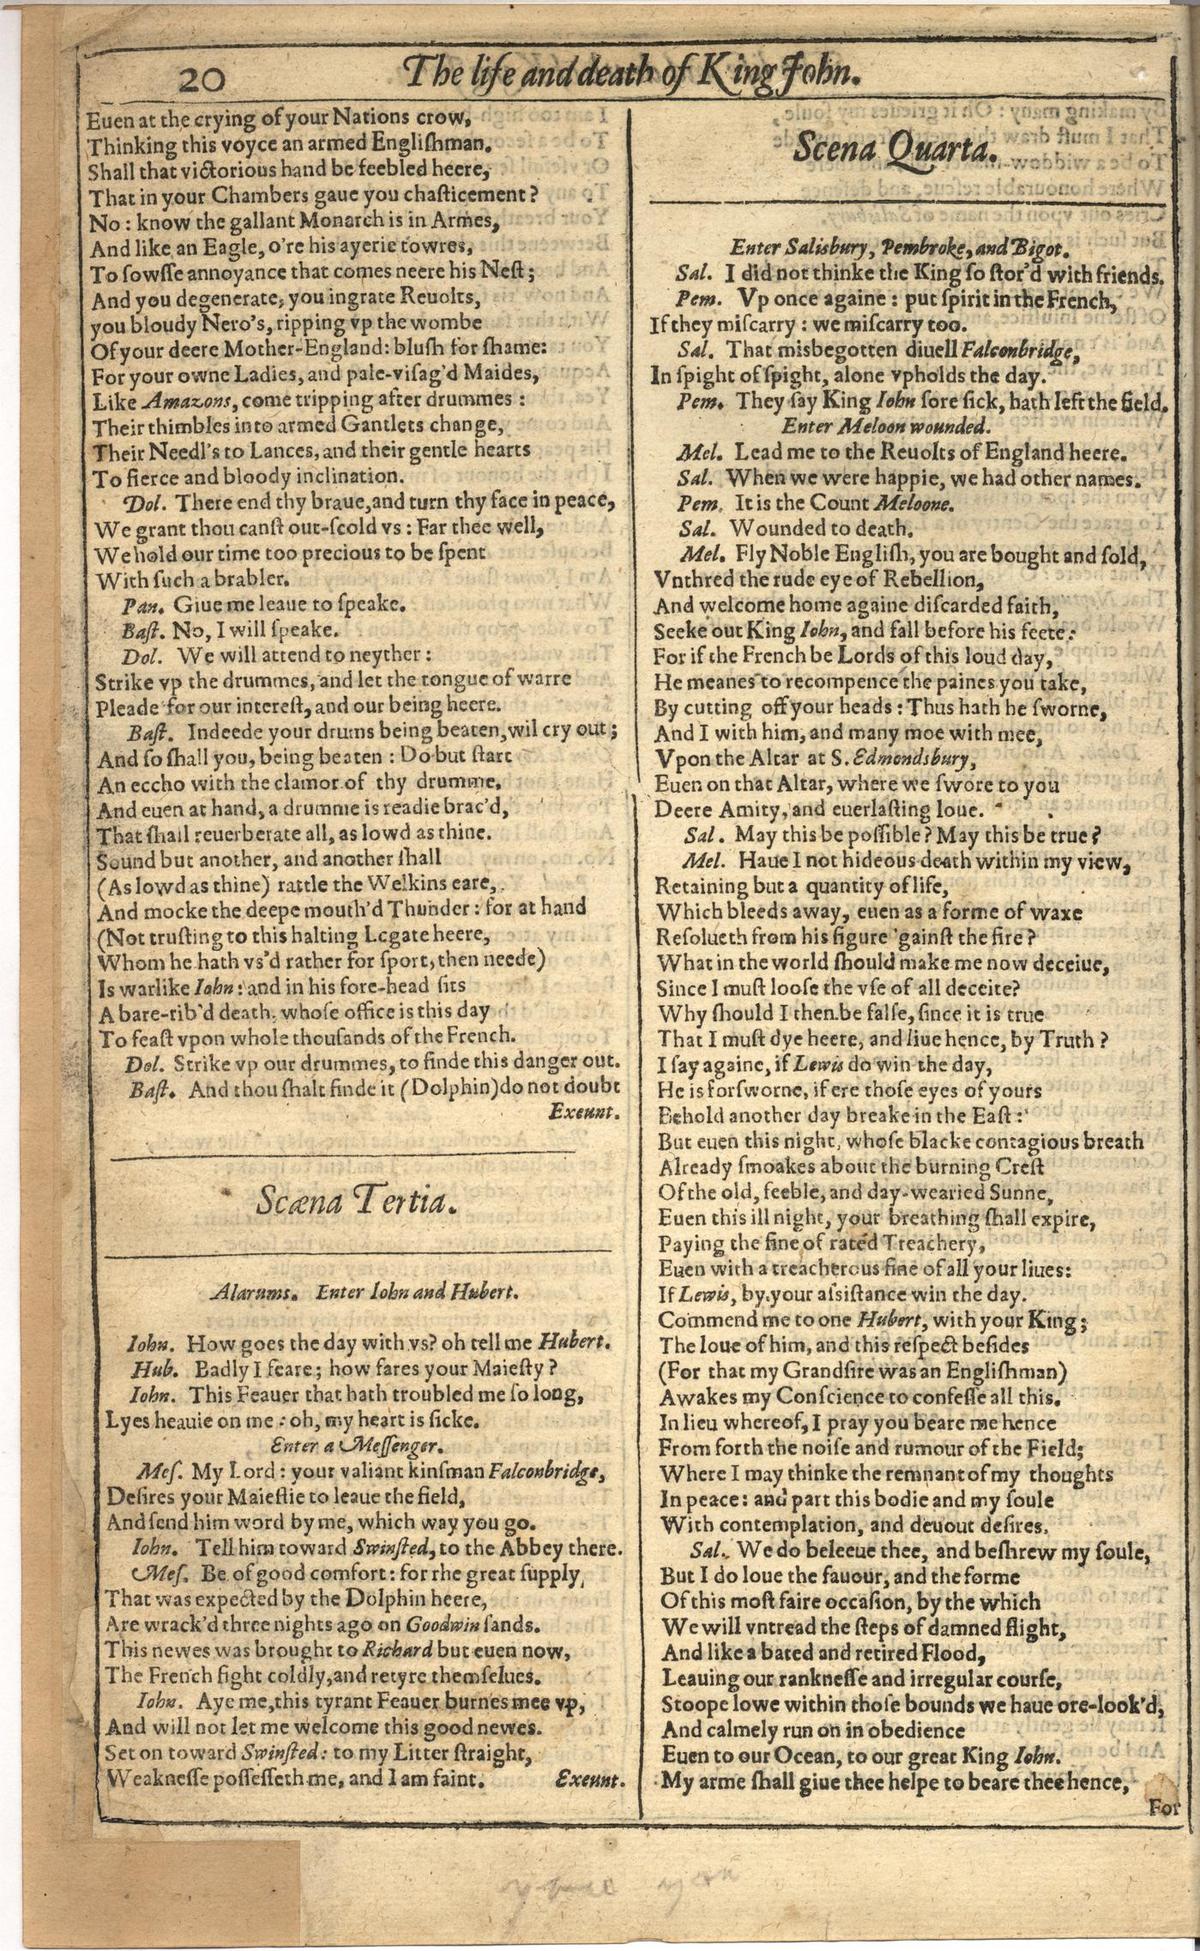 20
The life and death of King John.
Euen at the crying of your Nations crow,
Thinking this voyce an armed Engliſhman.
Shall that victorious hand be feebled heere,
That in your Chambers gaue you chaſticement?
No: know the gallant Monarch is in Armes,
And like an Eagle, o're his ayerie towres,
To ſowſſe annoyance that comes neere his Neſt;
And you degenerate, you ingrate Reuolts,
you bloudy Nero's, ripping vp the wombe
Of your deere Mother-England: bluſh for ſhame:
For your owne Ladies, and pale-viſag'd Maides,
Like Amazons, come tripping after drummes:
Their thimbles into armed Gantlets change,
Their Needl's to Lances, and their gentle hearts
To fierce and bloody inclination.
Dol. There end thy braue, and turn thy face in peace,
We grant thou canſt out-ſcold vs: Far thee well,
We hold our time too precious to be ſpent
With ſuch a brabler.
Pan. Giue me leaue to ſpeake.
Baſt. No, I will ſpeake.
Dol. We will attend to neyther:
Strike vp the drummes, and let the tongue of warre
Pleade for our intereſt, and our being heere.
Baſt. Indeede your drums being beaten, wil cry out;
And ſo ſhall you, being beaten: Do but ſtart
An eccho with the clamor of thy drumme,
And euen at hand, a drumme is readie brac'd,
That ſhall reuerberate all, as lowd as thine.
Sound but another, and another ſhall
(As lowd as thine) rattle the Welkins eare,
And mocke the deepe mouth'd Thunder: for at hand
(Not truſting to this halting Legate heere,
Whom he hath vs'd rather for ſport, then neede)
Is warlike Iohn: and in his fore-head ſits
A bare-rib'd death, whoſe office is this day
To feaſt vpon whole thouſands of the French.
Dol. Strike vp our drummes, to finde this danger out.
Baſt. And thou ſhalt finde it (Dolphin) do not doubt
Exeunt.
Scæna Tertia.
Alarums. Enter Iohn and Hubert.
Iohn. How goes the day with vs? oh tell me Hubert.
Hub. Badly I feare; how fares your Maieſty?
Iohn. This Feauer that hath troubled me ſo long,
Lyes heauie on me: oh, my heart is ſicke.
Enter a Meſſenger.
Meſ. My Lord: your valiant kinſman Falconbridge,
Deſires your Maieſtie to leaue the field,
And ſend him word by me, which way you go.
Iohn. Tell him toward Swinſted, to the Abbey there.
Meſ. Be of good comfort: for the great ſupply,
That was expected by the Dolphin heere,
Are wrack'd three nights ago on Goodwin ſands.
This newes was brought to Richard but euen now,
The French fight coldly, and retyre themſelues.
Iohn. Aye me, this tyrant Feauer burnes mee vp,
And will not let me welcome this good newes.
Set on toward Swinſted: to my Litter ſtraight,
Weakneſſe poſſeſſeth me, and I am faint. Exeunt.
Scena Quarta.
Enter Salisbury, Pembroke, and Bigot.
Sal. I did not thinke the King ſo ſtor'd with friends.
Pem. Vp once againe: put ſpirit in the French,
If they miſcarry: we miſcarry too.
Sal. That misbegotten diuell Falconbridge,
In ſpight of ſpight, alone vpholds the day.
Pem. They ſay King Iohn ſore ſick, hath left the field.
Enter Meloon wounded.
Mel. Lead me to the Reuolts of England heere.
Sal. When we were happie, we had other names.
Pem. It is the Count Meloone.
Sal. Wounded to death.
Mel. Fly Noble Engliſh, you are bought and ſold,
Vnthred the rude eye of Rebellion,
And welcome home againe diſcarded faith,
Seeke out King Iohn, and fall before his feete:
For if the French be Lords of this loud day,
He meanes to recompence the paines you take,
By cutting off your heads: Thus hath he ſworne,
And I with him, and many moe with mee,
Vpon the Altar at S. Edmondsbury,
Euen on that Altar, where we ſwore to you
Deere Amity, and euerlaſting loue.
Sal. May this be poſſible? May this be true?
Mel. Haue I not hideous death within my view,
Retaining but a quantity of life,
Which bleeds away, euen as a forme of waxe
Reſolueth from his figure 'gainſt the fire?
What in the world ſhould make me now deceiue,
Since I muſt looſe the vſe of all deceite?
Why ſhould I then be falſe, ſince it is true
That I muſt dye heere, and liue hence, by Truth?
I ſay againe, if Lewis do win the day,
He is forſworne, if ere thoſe eyes of yours
Behold another day breake in the Eaſt:
But euen this night, whoſe blacke contagious breath
Already ſmoakes about the burning Creſt
Of the old, feeble, and day-wearied Sunne,
Euen this ill night, your breathing ſhall expire,
Paying the fine of rated Treachery,
Euen with a treacherous fine of all your liues:
If Lewis, by your aſsiſtance win the day.
Commend me to one Hubert, with your King;
The loue of him, and this reſpect beſides
(For that my Grandſire was an Engliſhman)
Awakes my Conſcience to confeſſe all this.
In lieu whereof, I pray you beare me hence
From forth the noiſe and rumour of the Field;
Where I may thinke the remnant of my thoughts
In peace: and part this bodie and my ſoule
With contemplation, and deuout deſires.
Sal. We do beleeue thee, and beſhrew my ſoule,
But I do loue the fauour, and the forme
Of this moſt faire occaſion, by the which
We will vntread the ſteps of damned flight,
And like a bated and retired Flood,
Leauing our rankneſſe and irregular courſe,
Stoope lowe within thoſe bounds we haue ore-look'd,
And calmely run on in obedience
Euen to our Ocean, to our great King Iohn.
My arme ſhall giue thee helpe to beare thee hence,
For